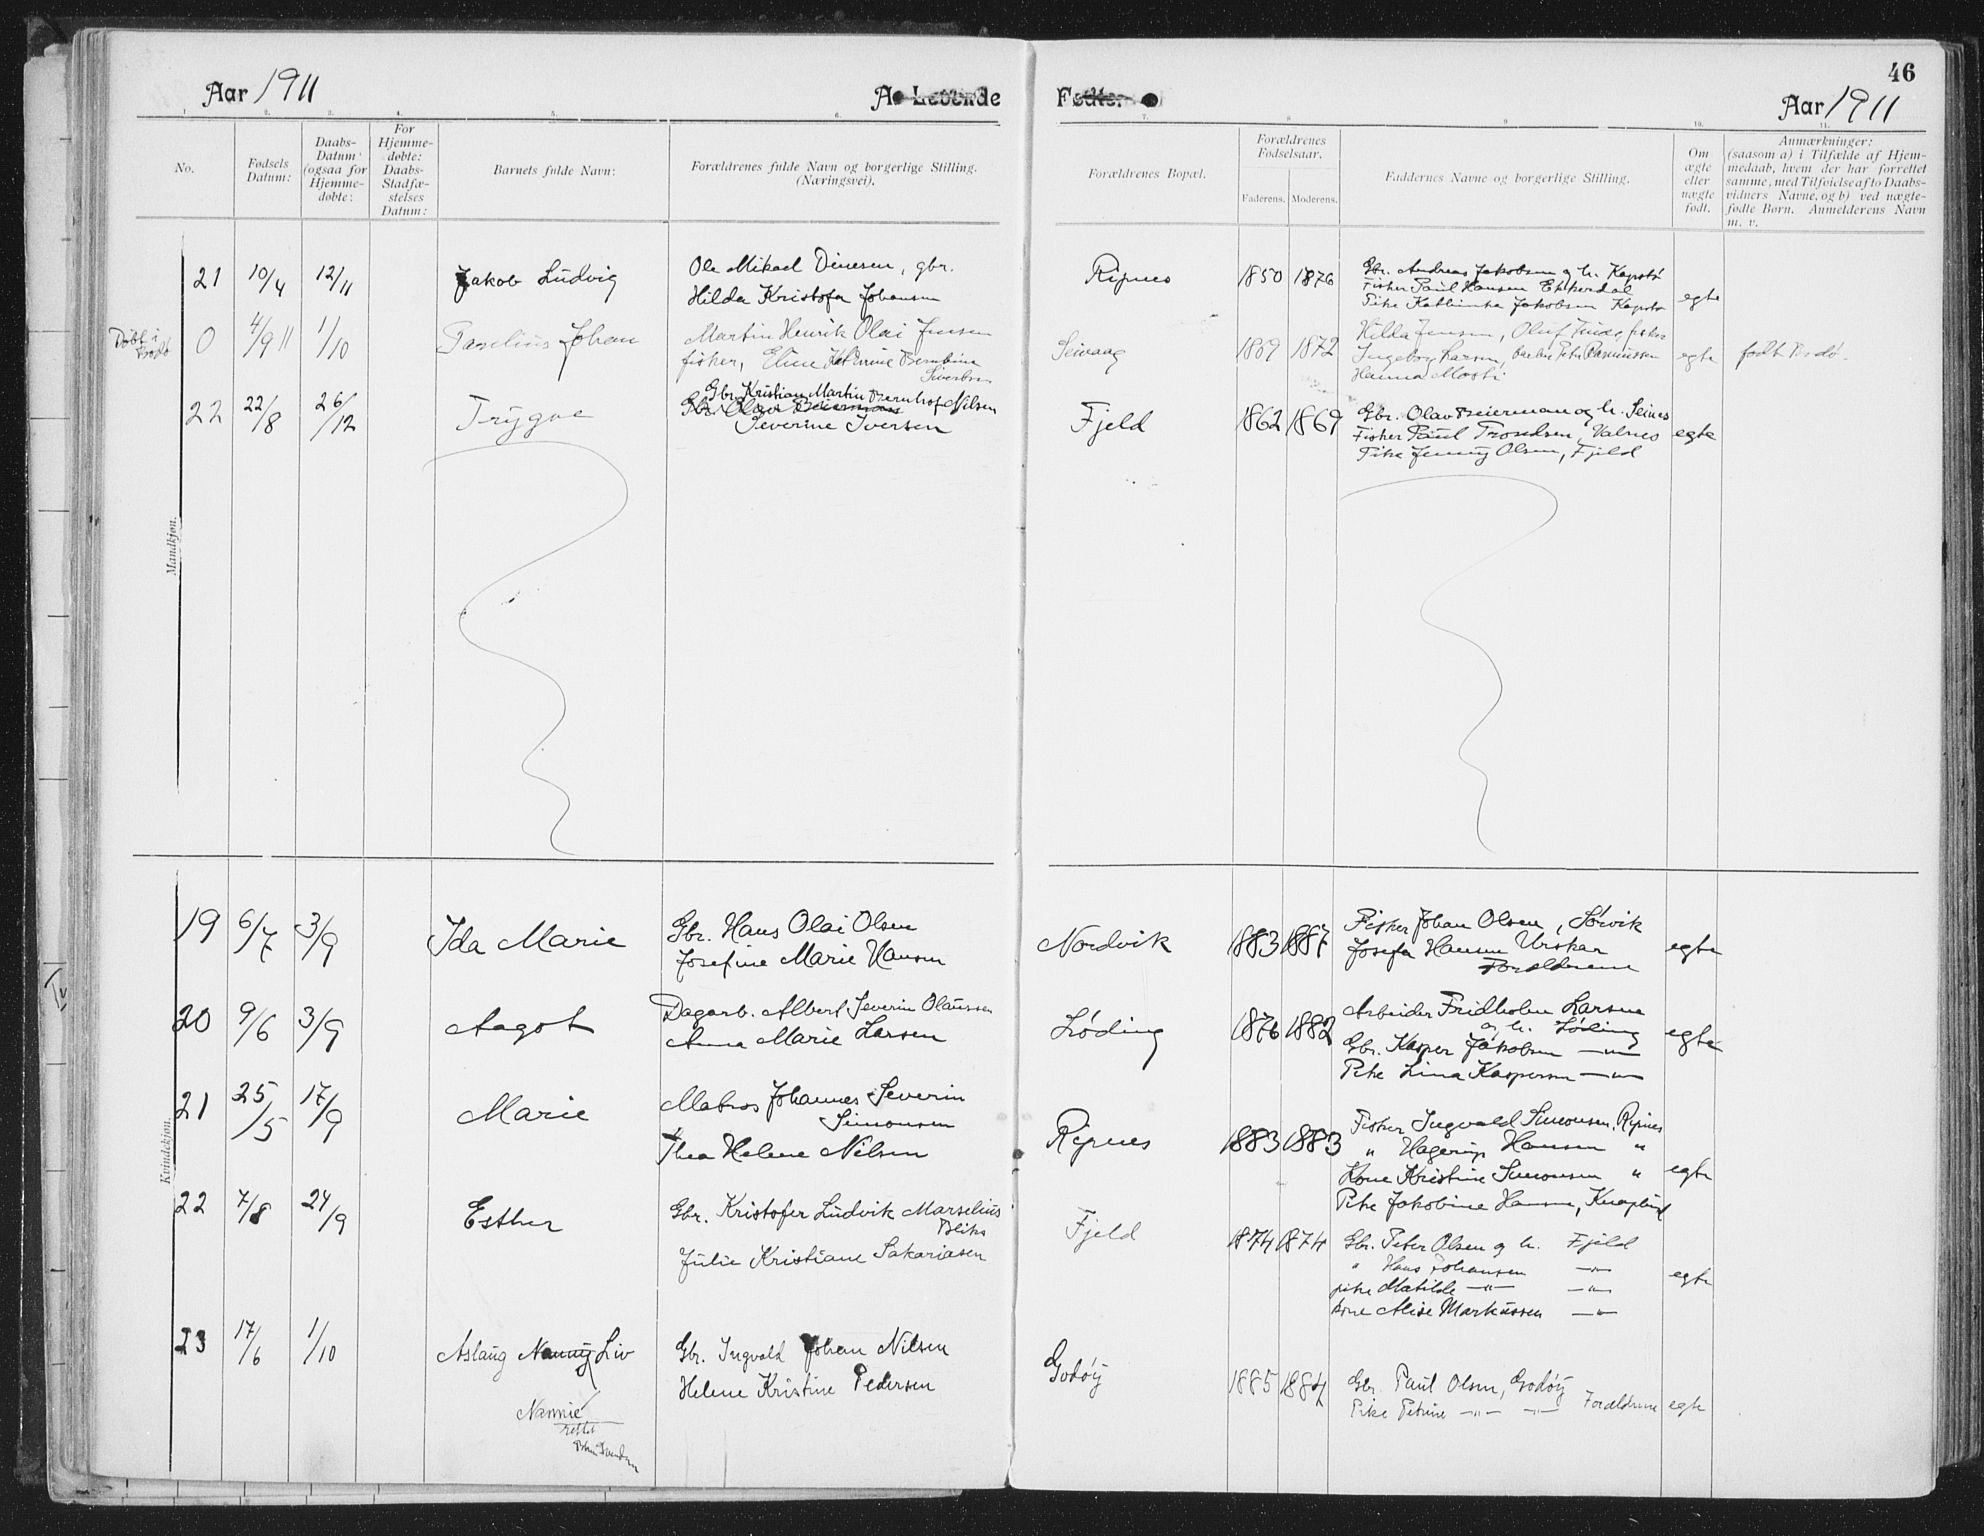 46
Aar 1911
A. Levende
Fødte.
Aar 1911
1. 2. 3. 4. 5. 6. 7. 8. 9. 10. 11.
No.
Fødsels Datum:
Daabs-Datum (ogsaa for Hjemme-døbte:
For Hjemme-døbte: Daabs-Stadfæ-stelses Datum:
Barnets fulde Navn:
Forældrenes fulde Navn og borgerlige Stilling.
(Næringsvei).
Forældrenes Bopæl.
Forældrenes Fødselsaar.
Faderens. Moderens.
Faddernes Navne og borgerlige Stilling.
Om ægte eller uægte født.
Anmærkninger:
(saasom a) i Tilfælde af Hjem-
medaab, hvem der har forrettet
samme, med Tilføielse af to Daabs-
vidners Navne, og b) ved uægte-
fødte Børn. Anmelderens Navn
m. v.
Mandkjøn.
21 10/4 12/11 Jakob Ludvig
Ole Mikael Dinesen, gbr.
Hilda Kristofa Johansen
Ripnes 1850 1876
Gbr. Andreas Jakobsen og h.
Fisher Paul Hansen
Pike Jakobsen
egte
Døbt i Bodø
0 4/9 11 1/10 Johan
Martin Henrik Olai Jensen
fisker, Bernbine
Sivertsen
Seivaag 1869 1872
Hilda Jensen, Oluf
Ingeborg Larsen, Rasmussen
Hanna
egte
født
22 22/8 26/12 Trygve
Gbr. Kristian Martin Bernhof Nilsen
Severine Iversen
Fjeld 1862 1869
Gbr. Olav Beierman og h. Seines
Fisher Paul Trondsen, Valnes
Pike Jenny Olsen, Fjeld
egte
Kvindekjøn.
19 6/7 3/9 Ida Marie
Gbr. Hans Olai Olsen
Josefine Marie Hansen
Nordvik 1883 1887
Fisker Johan Olsen, Sørvik
Josefa Hansen
Forældrene
egte
20 9/6 3/9 Aagot
Dagarb. Albert Severin Olaussen
Anna Marie Larsen
Løding 1876 1882
Arbeider Fridholm Larsen
og h. Løding
Gbr. Kasper Jakobsen —"—
Pike Lina Kaspersen —"—
egte
21 25/5 17/9 Marie
Matros Johannes Severin
Simonsen
Thea Helene Nilsen
Ripnes 1883 1883
Fisher Ingvald Simonsen, Ripnes
" Hagerup Hansen "
Kone Kristine Simonsen "
Pike Jakobine Hansen, Knaplund
egte
22 7/8 24/9 Esther
Gbr. Kristofer Ludvik Marselius
Bliks
Julie Kristiane Sakariasen
Fjeld 1874 1874
Gbr. Peter Olsen og h. Fjeld
" Hans Johansen —"—
pike Matilde —"— —"—
kone Alise Markussen —"—
egte
23 17/6 1/10 Aslaug Nanny Liv
Gbr. Ingvald Johan Nilsen
Helene Kristine Pedersen
Godøy 1885 1884
Gbr. Paul Olsen, Godøy
Pike Petrine —"— —"— Forældrene
egte
Nannie
rettet